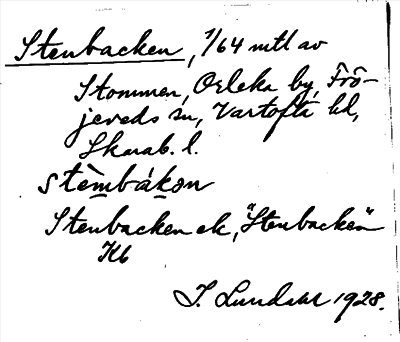 Stenbacken, 1/64 mtl av
Stommen, Orleka by, Frö-
jereds sn, Vartofta hd,
Skarab. l.
stèmbákon
Stenbacken ek, "Stenbacken"
Kb
J. Lundahl 1928.